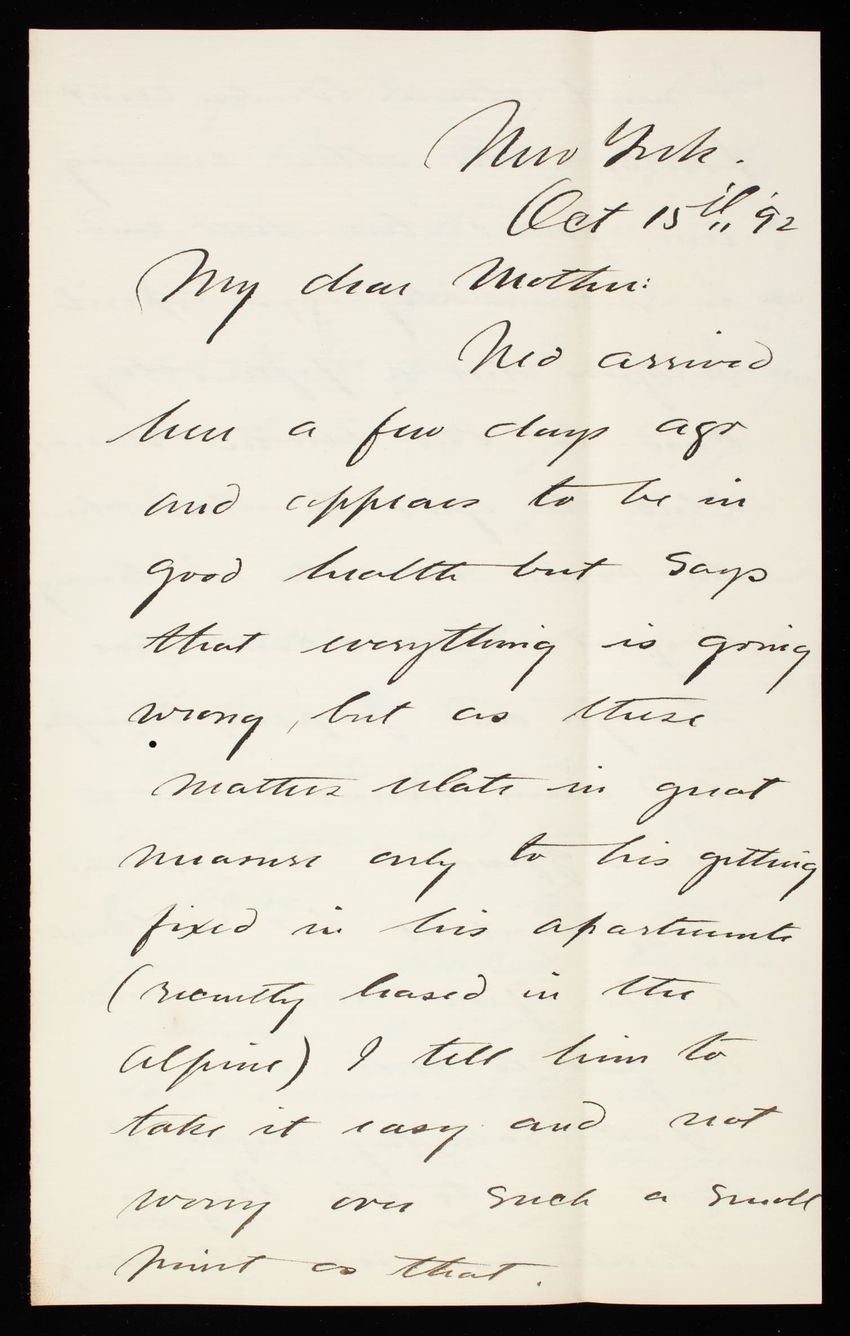 New York.
Oct 15th, '92
My dear Mother:
Ned arrived
here a few days ago
and appears to be in
good health but says
that everything is going
wrong, but as these
matters relate in great
measure only to his getting
fixed in his apartments
(recently leased in the
Alpine) I tell him to
take it easy and not
worry over such a small
point as that.